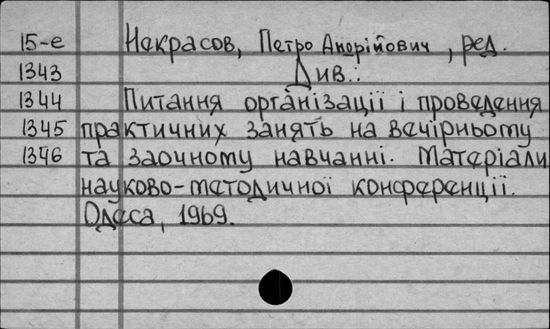 15-е Некрасов, Петро Андрійович, ред.
1343 Див.:
1344 Питання організації і проведення
1345 практичних занять на вечірньому
1346 та заочному навчанні. Матеріали
науково-методичної конференції.
Одеса, 1969.